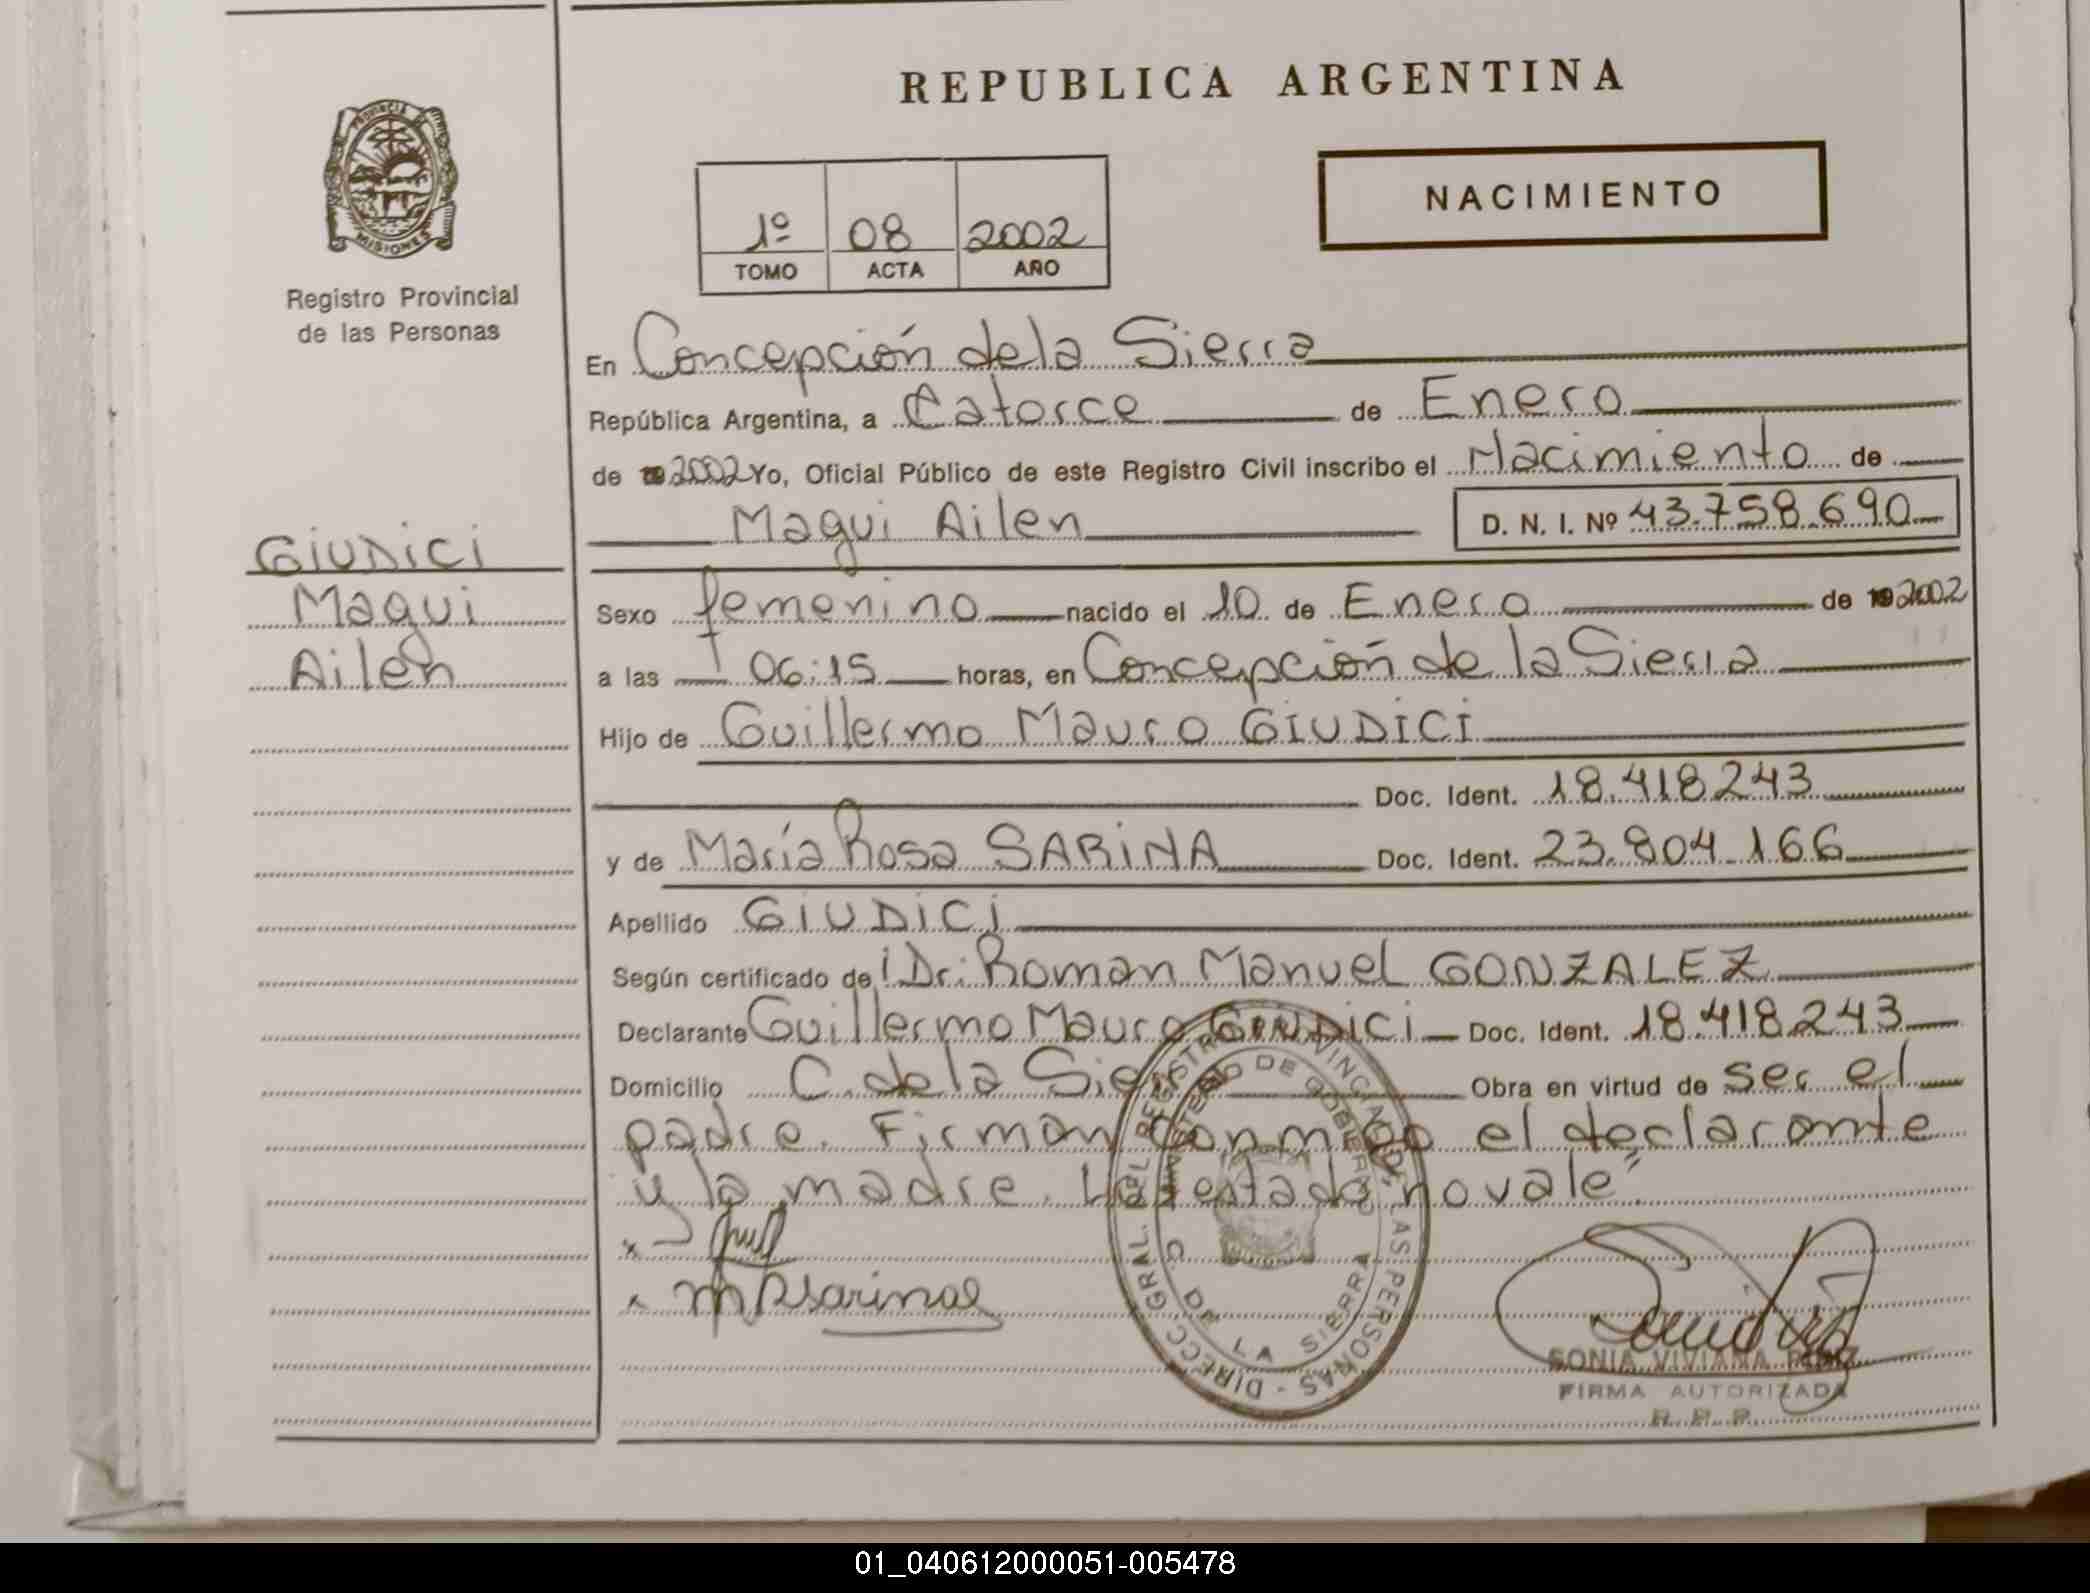 REPUBLICA ARGENTINA
PROVINCIA DE
MISIONES
Registro Provincial
de las Personas
NACIMIENTO
1º 08 2002
TOMO ACTA AÑO
En Concepción de la Sierra
República Argentina, a Catorce de Enero
de 19 2002 Yo, Oficial Público de este Registro Civil inscribo el Nacimiento de
Magui Ailen D. N. I. Nº 43.758.690
GIUDICI
Magui
Ailen
Sexo femenino nacido el 10 de Enero de 19 2002
a las 06:15 horas, en Concepción de la Sierra
Hijo de Guillermo Mauro GIUDICI
Doc. Ident. 18.418.243
y de María Rosa SARINA Doc. Ident. 23.804.166
Apellido GIUDICI
Según certificado de: Dr: Roman Manuel GONZALEZ
Declarante Guillermo Mauro GIUDICI Doc. Ident. 18.418.243
Domicilio C. de la Sierra Obra en virtud de ser el
padre. Firman conmigo el declarante
y la madre. Lo testado, no vale".
x
x MRSarinae
DIRECC. GRAL. DEL REGISTRO PROVINCIAL DE LAS PERSONAS -
MINISTERIO DE GOBIERNO
C. DE LA SIERRA
SONIA VIVIANA
FIRMA AUTORIZADA
R. P. P.
01_040612000051-005478